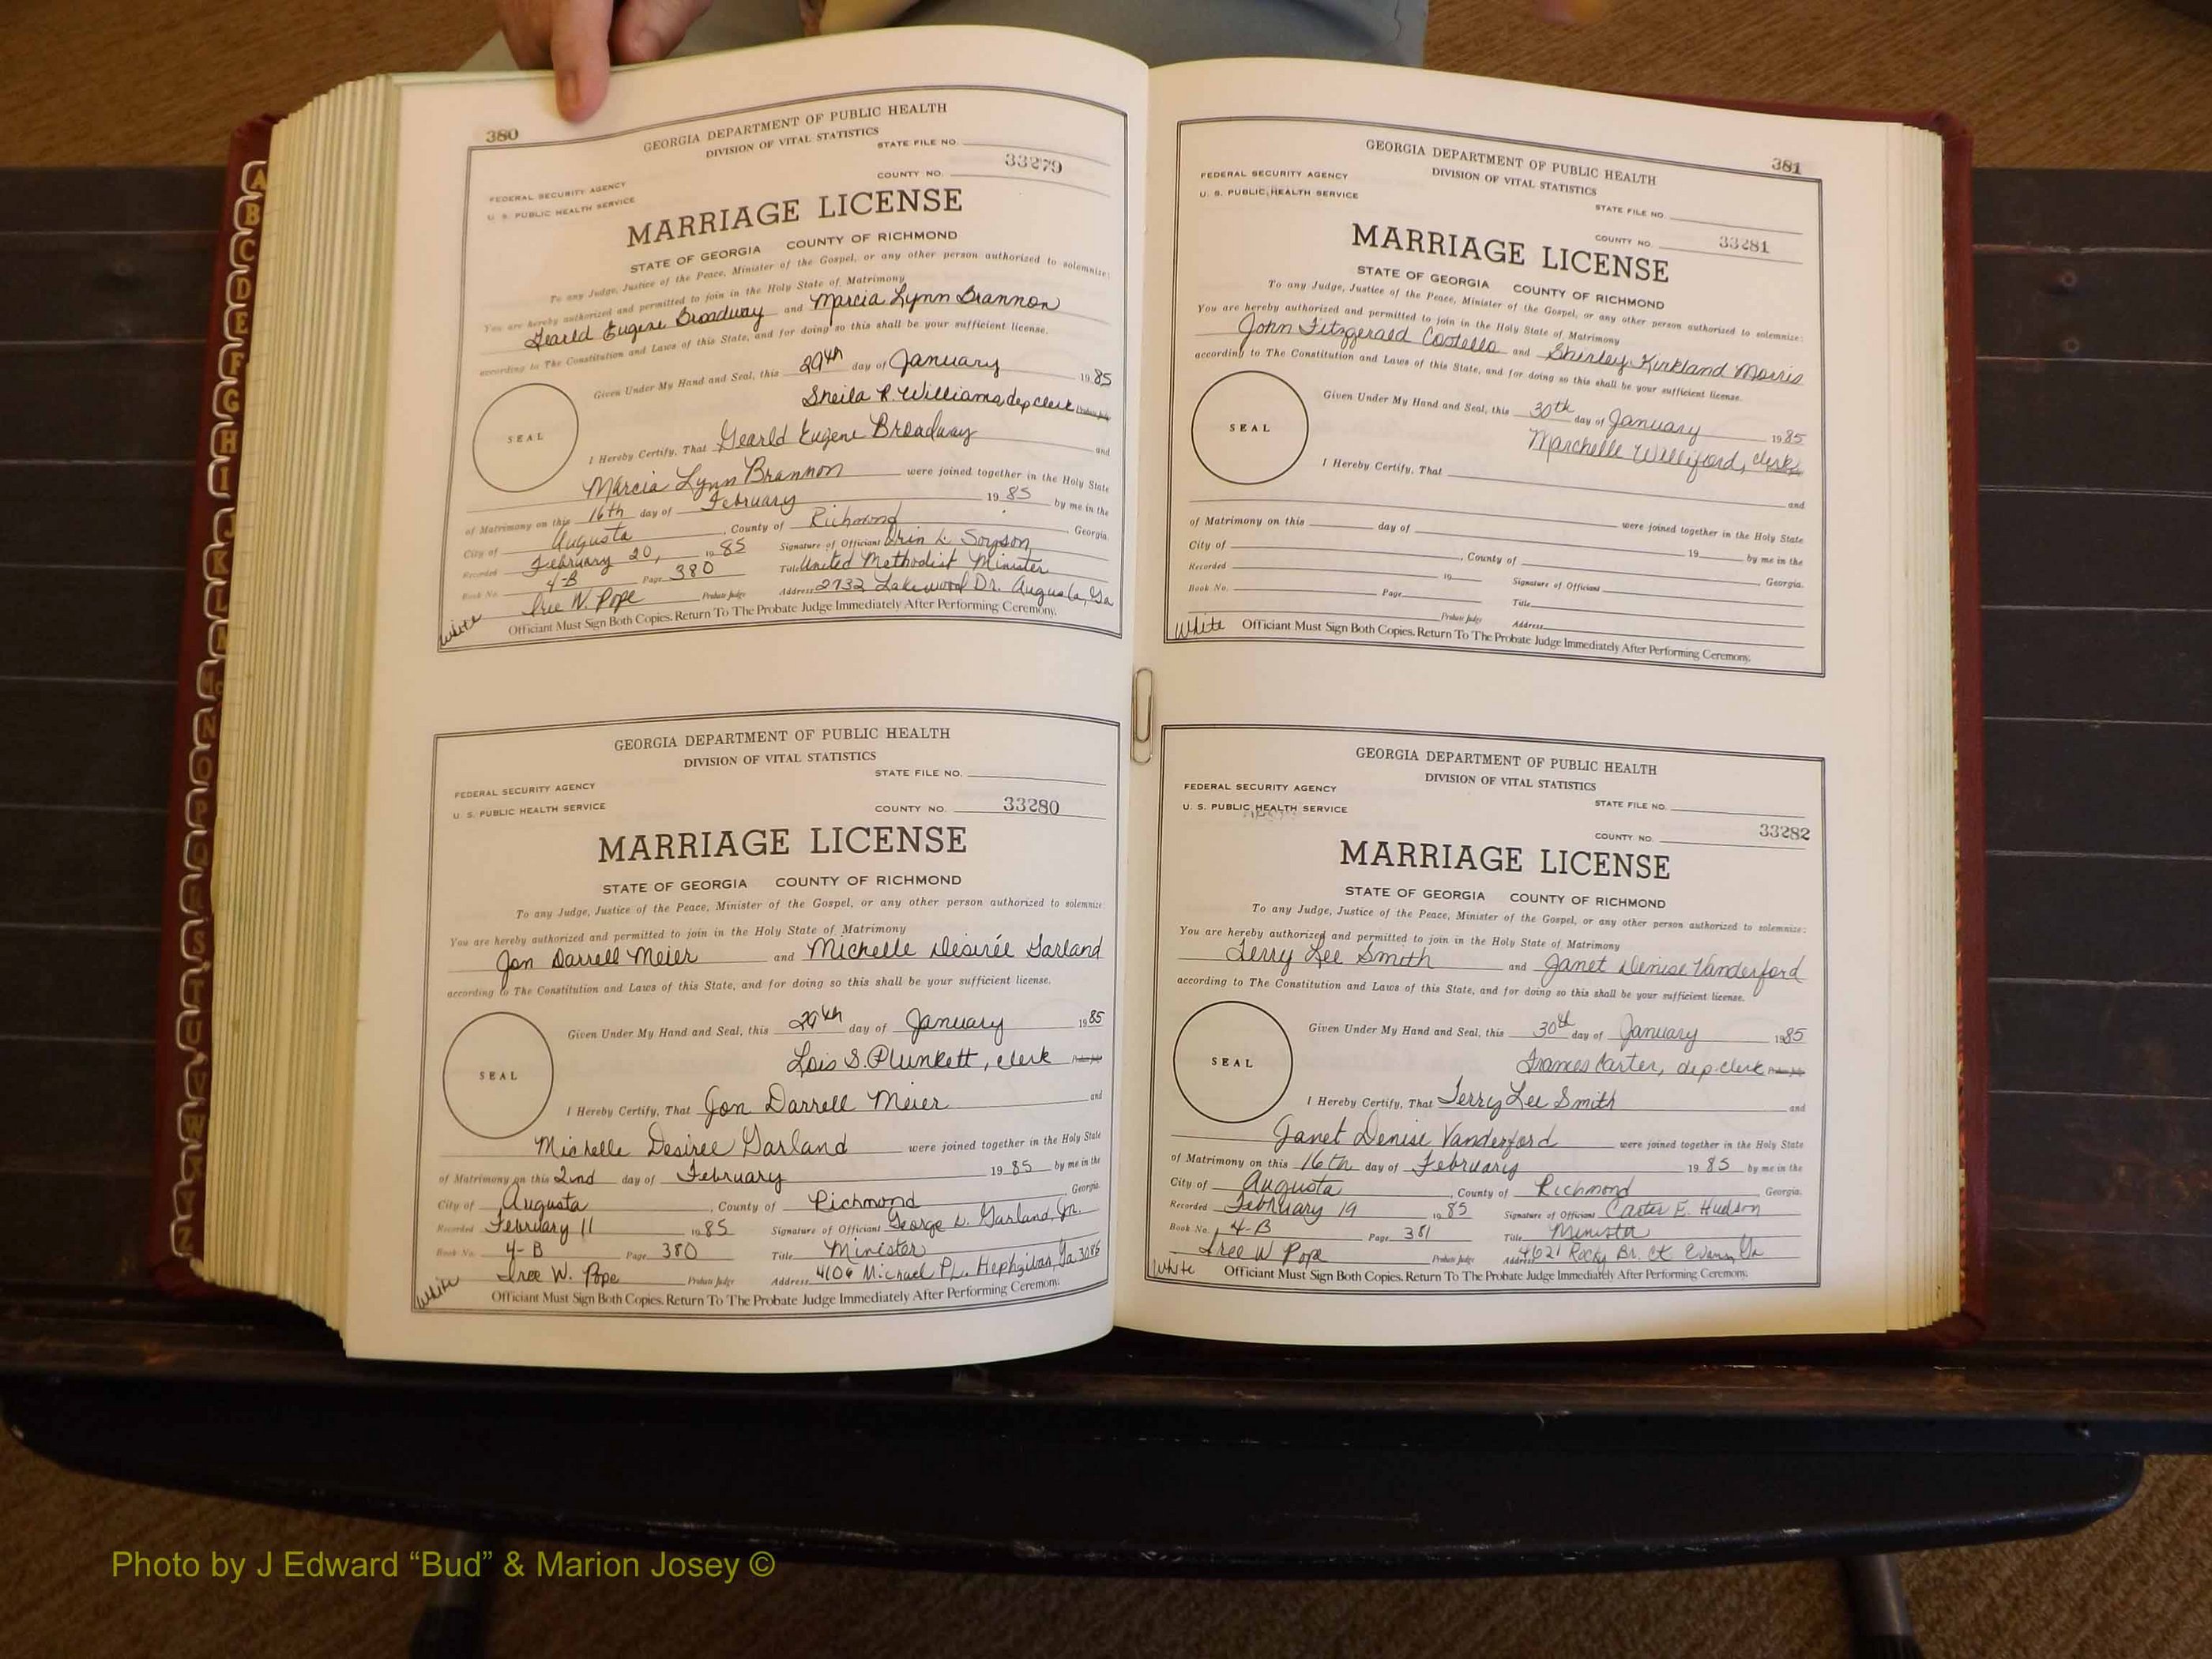 380
GEORGIA DEPARTMENT OF PUBLIC HEALTH
DIVISION OF VITAL STATISTICS
STATE FILE NO.
FEDERAL SECURITY AGENCY
COUNTY NO. 33279
U. S. PUBLIC HEALTH SERVICE
MARRIAGE LICENSE
STATE OF GEORGIA COUNTY OF RICHMOND
To any Judge, Justice of the Peace, Minister of the Gospel, or any other person authorized to solemnize:
You are hereby authorized and permitted to join in the Holy State of Matrimony
Gearld Eugene Broadway and Marcia Lynn Brannon
according to The Constitution and Laws of this State, and for doing so this shall be your sufficient license.
Given Under My Hand and Seal, this 29th day of January 1985
Sheila R. Williams, dep clerk Probate Judge
SEAL
I Hereby Certify, That Gearld Eugene Broadway and
Marcia Lynn Brannon were joined together in the Holy State
of Matrimony on this 16th day of February 1985 by me in the
City of Augusta, County of Richmond Georgia.
Recorded February 20, 1985 Signature of Officiant Orin L.
Book No. 4-B Page 380 Title United Methodist Minister
Iree W. Pope Probate Judge Address 2732 Lakewood Dr. Augusta, Ga
White Officiant Must Sign Both Copies. Return To The Probate Judge Immediately After Performing Ceremony.
GEORGIA DEPARTMENT OF PUBLIC HEALTH
DIVISION OF VITAL STATISTICS
STATE FILE NO.
FEDERAL SECURITY AGENCY
COUNTY NO. 33280
U. S. PUBLIC HEALTH SERVICE
MARRIAGE LICENSE
STATE OF GEORGIA COUNTY OF RICHMOND
To any Judge, Justice of the Peace, Minister of the Gospel, or any other person authorized to solemnize:
You are hereby authorized and permitted to join in the Holy State of Matrimony
Jon Darrell Meier and Michelle Desirée Garland
according to The Constitution and Laws of this State, and for doing so this shall be your sufficient license.
Given Under My Hand and Seal, this 29th day of January 1985
Lois S. Plunkett, clerk Probate Judge
SEAL
I Hereby Certify, That Jon Darrell Meier and
Michelle Desiree Garland were joined together in the Holy State
of Matrimony on this 2nd day of February 1985 by me in the
City of Augusta, County of Richmond Georgia.
Recorded February 11 1985 Signature of Officiant George L. Garland, Jr.
Book No. 4-B Page 380 Title Minister
Iree W. Pope Probate Judge Address 4106 Michael Pl. Hephzibah, Ga
White Officiant Must Sign Both Copies. Return To The Probate Judge Immediately After Performing Ceremony.
381
GEORGIA DEPARTMENT OF PUBLIC HEALTH
DIVISION OF VITAL STATISTICS
FEDERAL SECURITY AGENCY
U. S. PUBLIC HEALTH SERVICE
STATE FILE NO.
COUNTY NO. 33281
MARRIAGE LICENSE
STATE OF GEORGIA COUNTY OF RICHMOND
To any Judge, Justice of the Peace, Minister of the Gospel, or any other person authorized to solemnize:
You are hereby authorized and permitted to join in the Holy State of Matrimony
John Fitzgerald Costello and Shirley Kirkland Morris
according to The Constitution and Laws of this State, and for doing so this shall be your sufficient license.
Given Under My Hand and Seal, this 30th day of January 1985
Marchelle Williford, clerk
SEAL
I Hereby Certify, That and
were joined together in the Holy State
of Matrimony on this day of 19 by me in the
City of , County of Georgia.
Recorded 19 Signature of Officiant
Book No. Page Title
Probate Judge Address
White Officiant Must Sign Both Copies. Return To The Probate Judge Immediately After Performing Ceremony.
GEORGIA DEPARTMENT OF PUBLIC HEALTH
DIVISION OF VITAL STATISTICS
FEDERAL SECURITY AGENCY
U. S. PUBLIC HEALTH SERVICE
STATE FILE NO.
COUNTY NO. 33282
MARRIAGE LICENSE
STATE OF GEORGIA COUNTY OF RICHMOND
To any Judge, Justice of the Peace, Minister of the Gospel, or any other person authorized to solemnize:
You are hereby authorized and permitted to join in the Holy State of Matrimony
Terry Lee Smith and Janet Denise Vanderford
according to The Constitution and Laws of this State, and for doing so this shall be your sufficient license.
Given Under My Hand and Seal, this 30th day of January 1985
Frances Carter, dep. clerk Probate Judge
SEAL
I Hereby Certify, That Terry Lee Smith and
Janet Denise Vanderford were joined together in the Holy State
of Matrimony on this 16th day of February 1985 by me in the
City of Augusta, County of Richmond Georgia.
Recorded February 19 1985 Signature of Officiant Carter E. Hudson
Book No. 4-B Page 381 Title Minister
Iree W Pope Probate Judge Address 4621 Rocky Br. Ct Evans, Ga
White Officiant Must Sign Both Copies. Return To The Probate Judge Immediately After Performing Ceremony.
Photo by J Edward “Bud” & Marion Josey ©